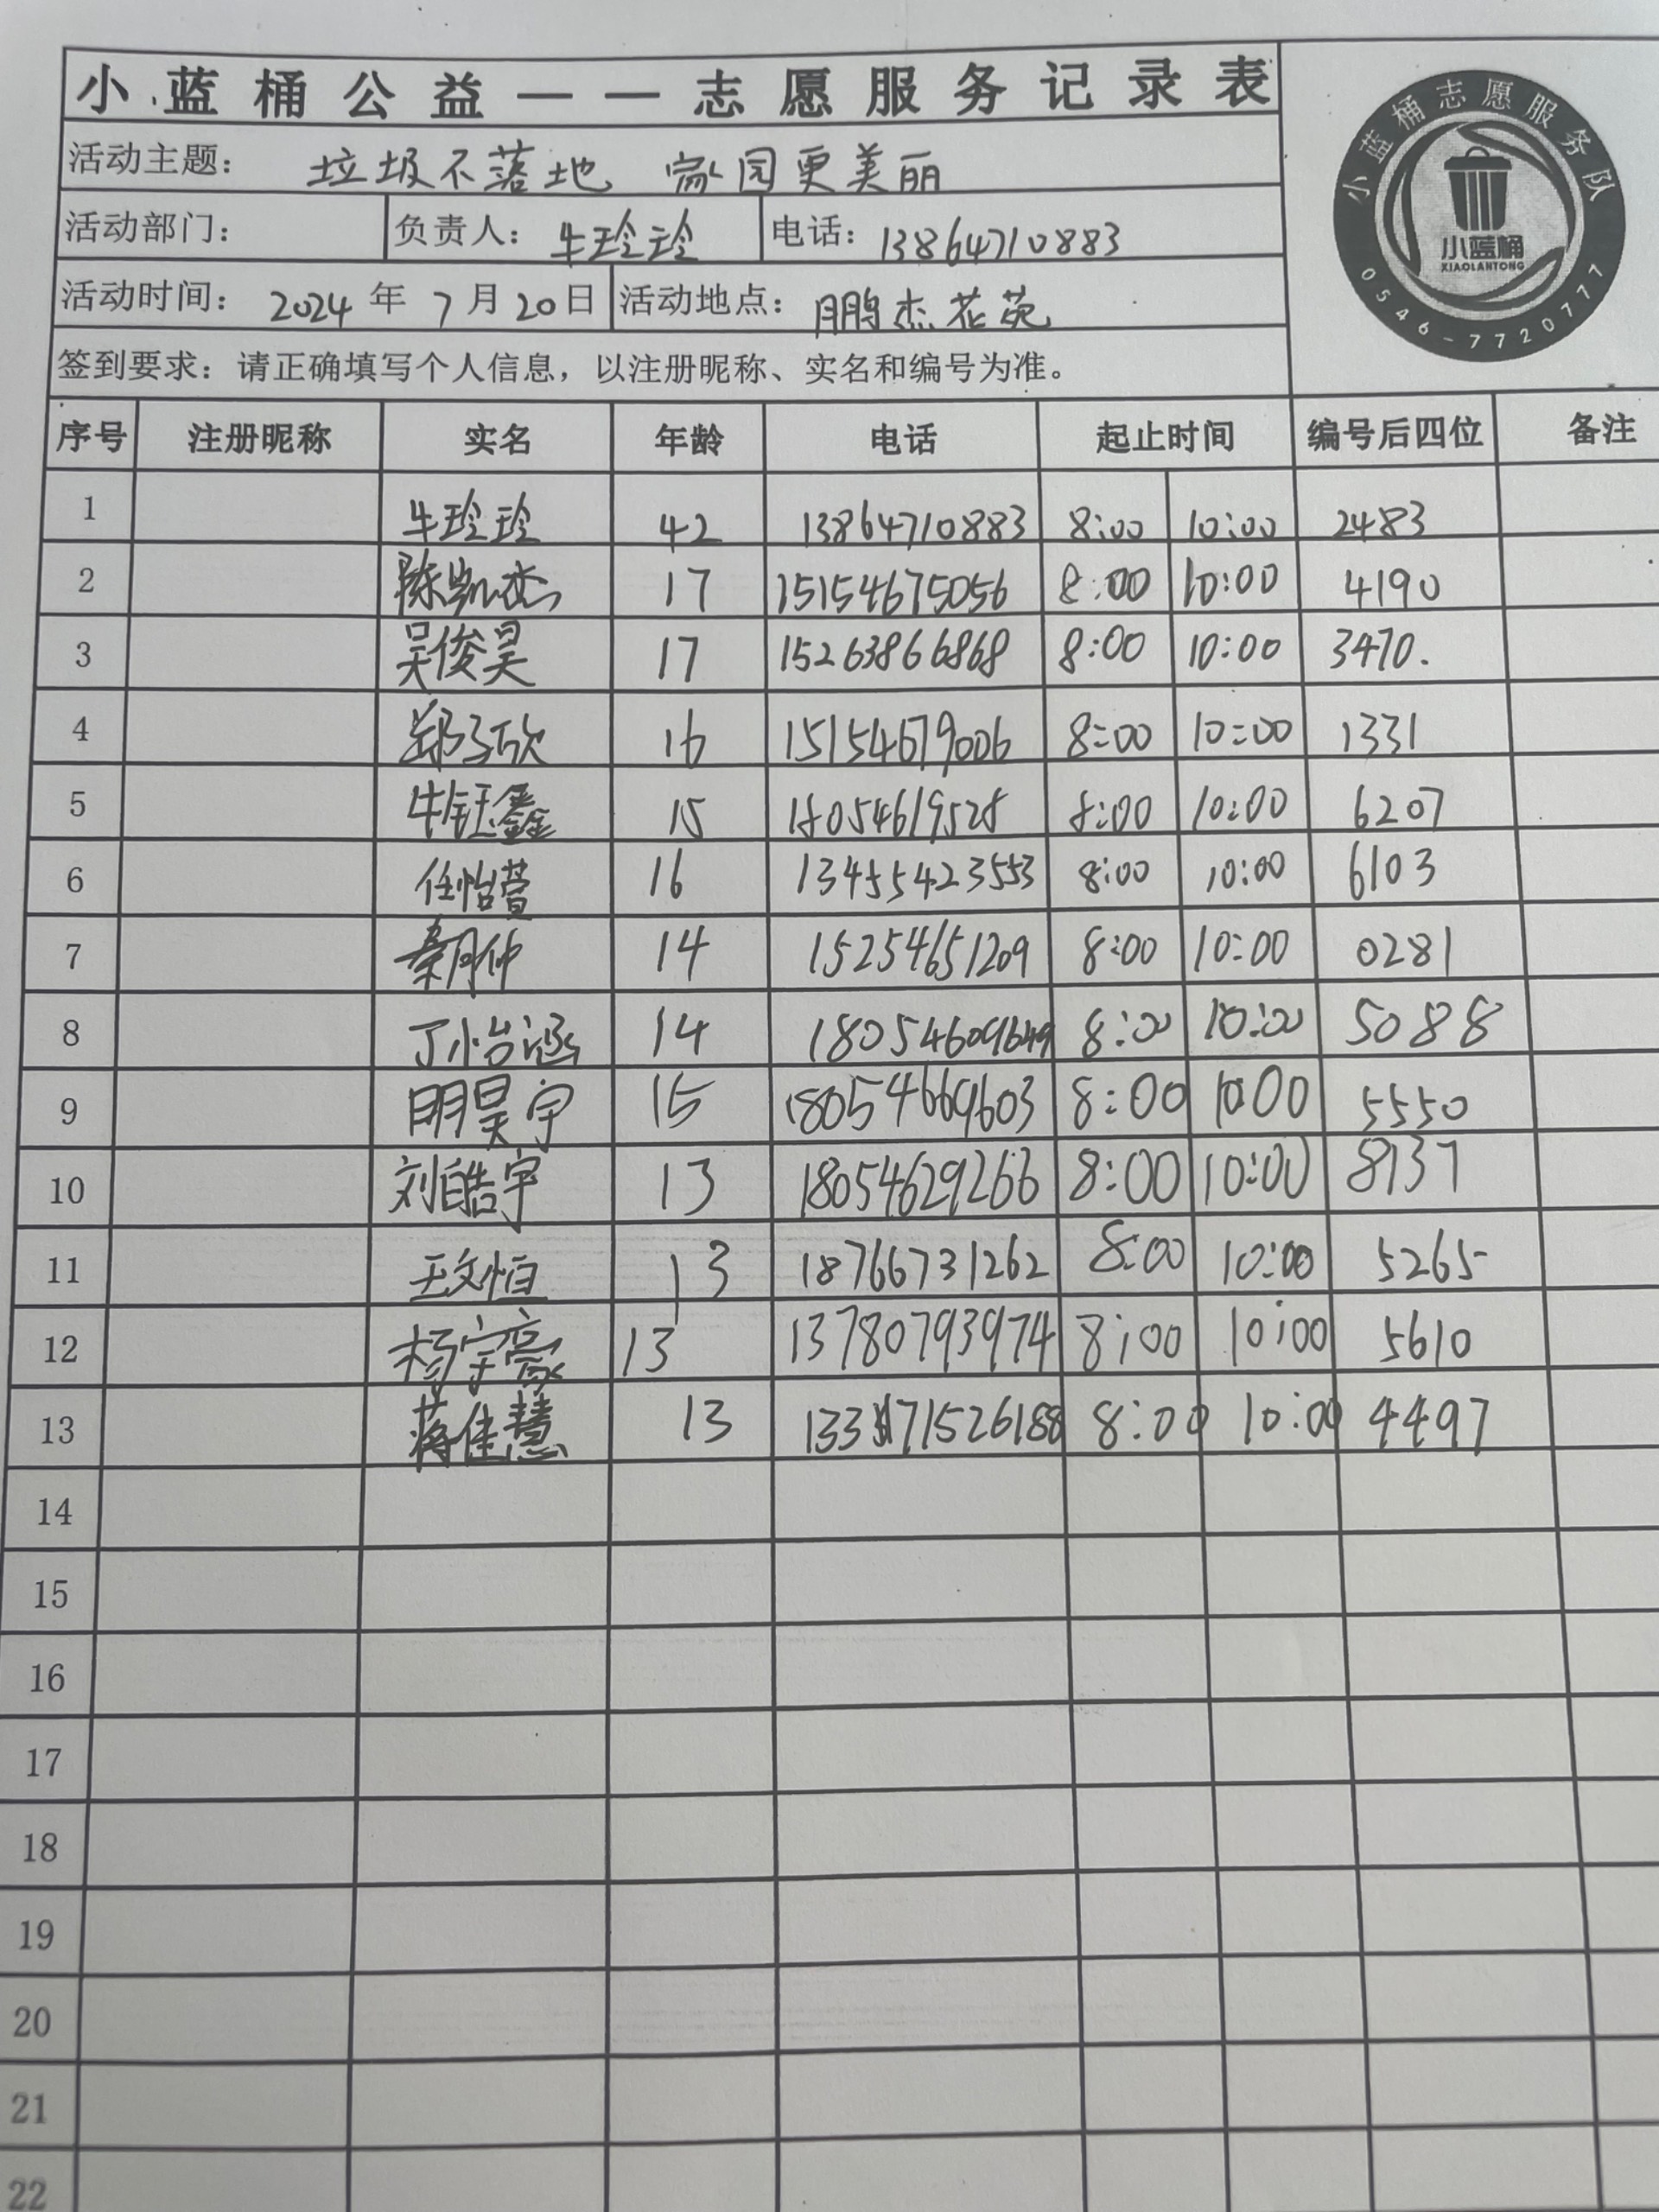 小蓝桶公益——志愿服务记录表
小蓝桶志愿服务队
小蓝桶
XIAOLANTONG
0546-7720777
活动主题： 垃圾不落地 家园更美丽
活动部门： 负责人：牛玲玲 电话：13864710883
活动时间：2024年7月20日 活动地点：鹏杰花苑
签到要求：请正确填写个人信息，以注册昵称、实名和编号为准。
序号 注册昵称 实名 年龄 电话 起止时间 编号后四位 备注
1 牛玲玲 42 13864710883 8:00 10:00 2483
2 陈凯杰 17 15154675056 8:00 10:00 4190
3 吴俊昊 17 15263866868 8:00 10:00 3470.
4 郑子欣 16 15154679006 8:00 10:00 1331
5 牛钰鑫 15 18054619528 8:00 10:00 6207
6 任怡萱 16 13455423553 8:00 10:00 6103
7 秦月仲 14 15254651209 8:00 10:00 0281
8 丁怡涵 14 18054609649 8:00 10:00 5088
9 明昊宇 15 18054669603 8:00 10:00 5550
10 刘皓宇 13 18054629266 8:00 10:00 8137
11 王文恒 13 18766731262 8:00 10:00 5265
12 杨宇豪 13 13780793974 8:00 10:00 5610
13 蒋佳慧 13 8:00 10:00 4497
14
15
16
17
18
19
20
21
22